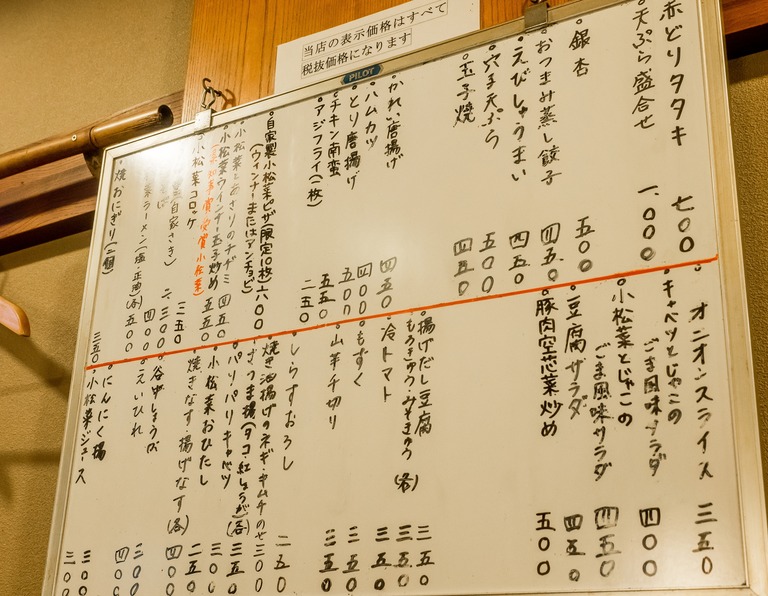 当店の表示価格はすべて
税抜価格になります
PILOT
赤どりタタキ 七〇〇
・天ぷら盛合せ 一、〇〇〇
・銀杏 五〇〇
・おつまみ蒸し餃子 四五〇
・えびしゅうまい 四五〇
・穴子天ぷら 五〇〇
・玉子焼 四五〇
・かれい唐揚げ 四五〇
・ハムカツ 四〇〇
・とり唐揚げ 五〇〇
・チキン南蛮 五五〇
・アジフライ(一枚) 二五〇
・自家製小松菜ピザ(限定10枚) 八〇〇
(ウィンナーまたはアンチョビ)
・小松菜とあさりのチヂミ 四五〇
・小松菜ウインナー玉子炒め 五五〇
・小松菜コロッケ 二五〇
ラーメン(塩・正油)(各) 五〇〇
・焼おにぎり(二個) 三五〇
オニオンスライス 三五〇
・キャベツとじゃこの
ごま風味サラダ 四〇〇
・小松菜とじゃこの
ごま風味サラダ 四五〇
・豆腐サラダ 四五〇
・豚肉空芯菜炒め 五〇〇
・揚げだし豆腐 三五〇
・もろきゅう・みそきゅう(各) 三五〇
・冷トマト 三五〇
・もずく
・山芋千切り
・しらすおろし 二五〇
・焼き油揚げのネギ・キムチのせ 三〇〇
・さつま揚(タコ・紅しょうが)(各) 三五〇
・パリパリキャベツ 三〇〇
・小松菜おひたし 二五〇
・焼きなす・揚げなす(各) 四〇〇
・谷中しょうが
・えいひれ 四〇〇
・にんにく揚 三〇〇
・小松菜ジュース 三〇〇